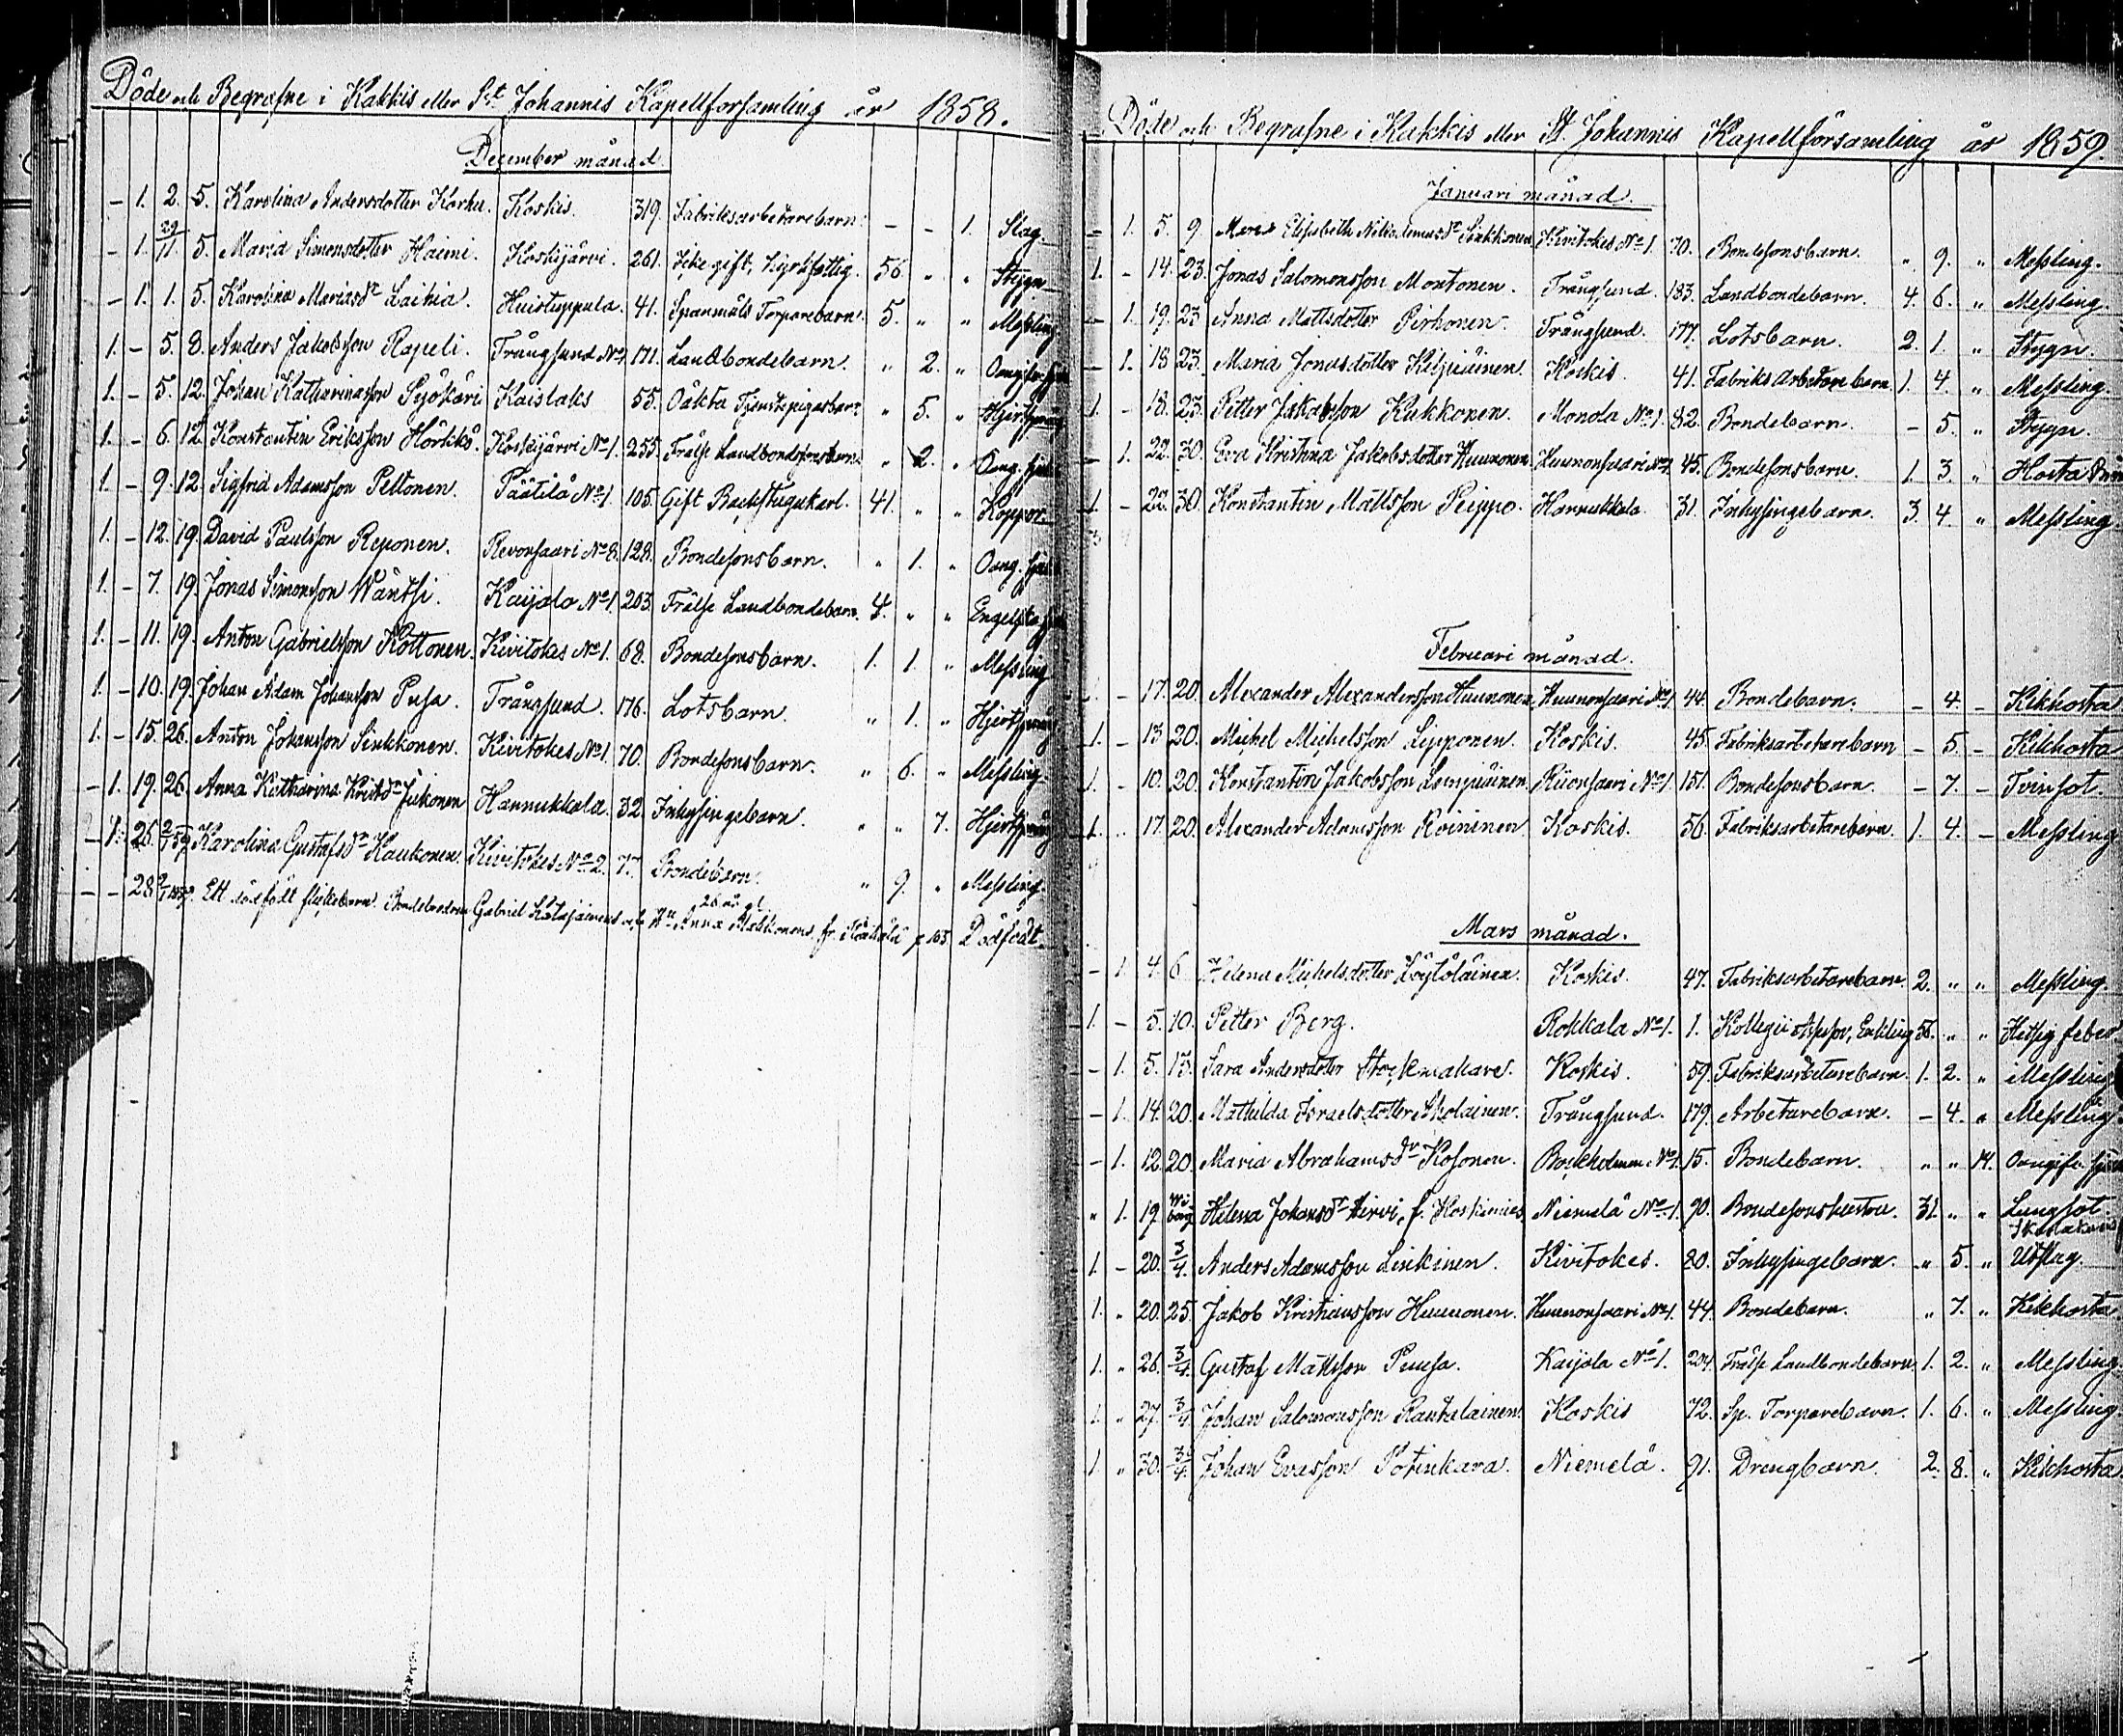 Döde och Begrafne i Kakkis eller St Johannis Kapellforsamling år 1858.
December månad
- 1. 2. 5. Karolina Andersdotter Korhu. Koskis. 319. Fabriksarbetarebarn. - - 1. Slag.
- 1. 29/11. 5. Maria Simonsdotter Haimi. Koskijärvi. 261. Icke gift, Kyrkfattig. 56. " " Stygn
- 1. 1. 5. Karolina Mariasdr Laihia. Huistuppula. 41. Spanmåls Torparebarn. 5. " " Meßling
1. - 5. 8. Anders Jakobsson Rapeli. Trångsund No 1. 171. Landbondebarn. " 2. " Oangifven
1. - 5. 12. Johan Katharinasson Sjöskäri Kaislaks 55. Oäkta Tjenstepigasbarn " 5. " Hjertsprång
1. - 6. 12. Konstantin Eriksson Hörkkö. Koskijärvi No 1. 255. Frälse Landbondesonsbarn " 2. " Oang.
1. - 9. 12. Sigfrid Adamsson Peltonen. Päätilä No 1. 105. Gift Backstugukarl. 41. " " Koppor.
1. - 12. 19. David Paulsson Reponen. Revonsaari No 8. 128. Bondesonsbarn. " 1. " Oang.
1. - 7. 19. Jonas Simonsson Wäntsi. Kaijala No 1. 203. Frälse Landbondebarn. 4. " " Engelska
1. - 11. 19. Anton Gabrielsson Kottonen. Kivitokes No 1. 68. Bondesonsbarn. 1. 1. " Meßling
1. - 10. 19. Johan Adam Johansson Pusa. Trångsund. 176. Lotsbarn. " 1. " Hjertsprång
1. - 15. 26. Anton Johansson Sinkkonen. Kivitokes No 1. 70. Bondesonsbarn. " 6. " Meßling.
- 1. 19. 26. Anna Katharina Kristdr Jukonen Hannukkala. 32. Inhysingebarn. " " 7. Hjertsprång
- 1. 25. 2/1 59. Karolina Gustafsdr Kaukonen. Kivitokes No 2. 77. Bondebarn. " 9. " Meßling.
- - 28. 9/1 1859. Ett dödfödt flickebarn. Gabriel och Hu Anna 26 år gl. fr. p 103 Dödfödt
Döde och Begrafne i Kakkis eller St. Johannis Kapellförsamling år 1859.
Januari månad.
- 1. 5. 9. Maria Elisabeth Nikodemusdr Sinkkonen Kivitokes No 1. 70. Bondesonsbarn. " 9. " Meßling.
1. - 14. 23. Jonas Salomonsson Montonen. Trångsund. 183. Landbondebarn. 4. 6. " Meßling.
- 1. 19. 23 Anna Mattsdotter Pirhonen. Trångsund. 177. Lotsbarn. 2. 1. " Stygn.
- 1. 18. 23. Maria Jonasdotter Kiljuäinen Koskis. 41. Fabriksarbetarebarn 1. 4. " Meßling.
1. - 18. 23. Petter Jakobsson Kukkonen. Monola No 1. 82. Bondebarn. - 5. " Stygn.
- 1. 22. 30. Eva Kristina Jakobsdotter Huunonen Huunonsaari No 1. 45. Bondesonsbarn. 1. 3. " Hosta
1. - 22. 30. Konstantin Mattsson Peippo. Hannukkala 31. Inhysingebarn. 3. 4. " Meßling
Februari månad.
1. - 17. 20. Alexander Alexandersson Huunonen Huunonsaari No 1. 44. Bondebarn. - 4. - Kikhosta
1. - 13 20. Michel Michelsson Lipponen. Koskis. 45. Fabriksarbetarebarn - 5. - Kikhosta
1. - 10. 20. Konstantin Jakobsson Lempiäinen Kiionsaari No 1. 151. Bondesonsbarn. - 7. - Tvinsot.
1. - 17. 20. Alexander Adamsson Kvininen Koskis. 56. Fabriksarbetarebarn. 1. 4. - Meßling
Mars månad.
- 1. 4. 6 Helena Michelsdotter Löytöläinen. Koskis. 47. Fabriksarbetarebarn 2. " " Meßling.
1. - 5. 10. Petter Berg. Rokkala No 1. 1. Kollegii Assessor, Enkling 58. " " Hetsig feber.
- 1. 5. 13. Sara Andersdotter Stockmakare. Koskis. 59. Fabriksarbetarebarn. 1. 2. " Meßling
- 1. 14. 20. Mathilda Israelsdotter Aholainen. Trångsund. 179. Arbetarebarn. - 4. " Meßling
- 1. 12. 20. Maria Abrahamsdr Kosonen. Bockholmen No 1. 15. Bondebarn. " " 14. Oangifv.
" 1. 19. Wiborg Helena Johansdr Hirvi, f. Koskimies Niemelä No 1. 90. Bondesonshustru. 31. " " Lungsot.
1. - 20. 3/4. Anders Adamsson Linkinen. Kivitokes. 80. Inhysingebarn. " 5. " Utslag.
1. " 20. 25. Jakob Kristiansson Huunonen. Huunonsaari No 1. 44. Bondebarn. " 7. " Kikhosta
1. " 26. 3/4. Gustaf Mattsson Puusa. Kaijala No 1. 204. Frälse Landbondebarn 1. 2. " Meßling
1. " 27. 3/4. Johan Salomonsson Rautalainen. Koskis 72. Sp. Torparebarn. 1. 6. " Meßling.
1. " 30. 3/4. Johan Evasson Potinkara. Niemelä. 91. Drengbarn. 2. 8. " Kikhosta